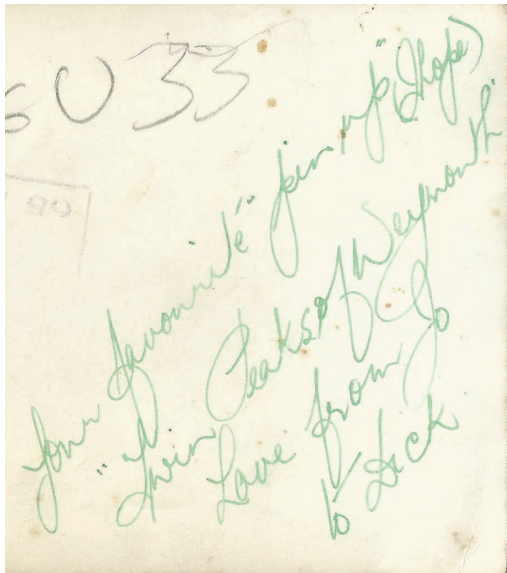 6U 33
Your favourite" "pin up" (I hope)
"Twin Peaks of Weymouth"
Love from Jo
to Dick